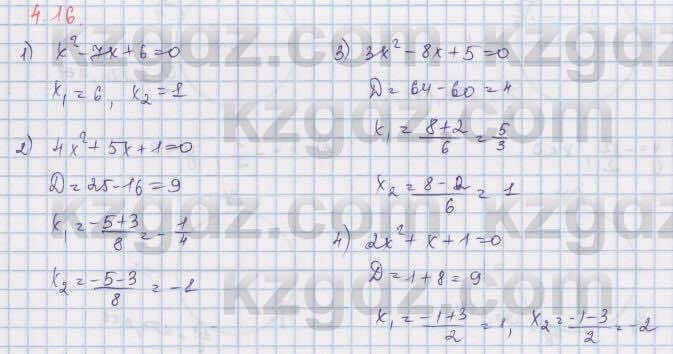 4.16
1) x² - 7x + 6 = 0
x₁ = 6, x₂ = 1
2) 4x² + 5x + 1 = 0
D = 25 - 16 = 9
x₁ = (-5+3)/8 = -1/4
x₂ = (-5-3)/8 = -1
3) 3x² - 8x + 5 = 0
D = 64 - 60 = 4
x₁ = (8+2)/6 = 5/3
x₂ = (8-2)/6 = 1
4) 2x² + x + 1 = 0
D = 1 + 8 = 9
x₁ = (-1+3)/2 = 1, x₂ = (-1-3)/2 = -2
kzgdz.com
kzgdz.com
kzgdz.com
kzgdz.com